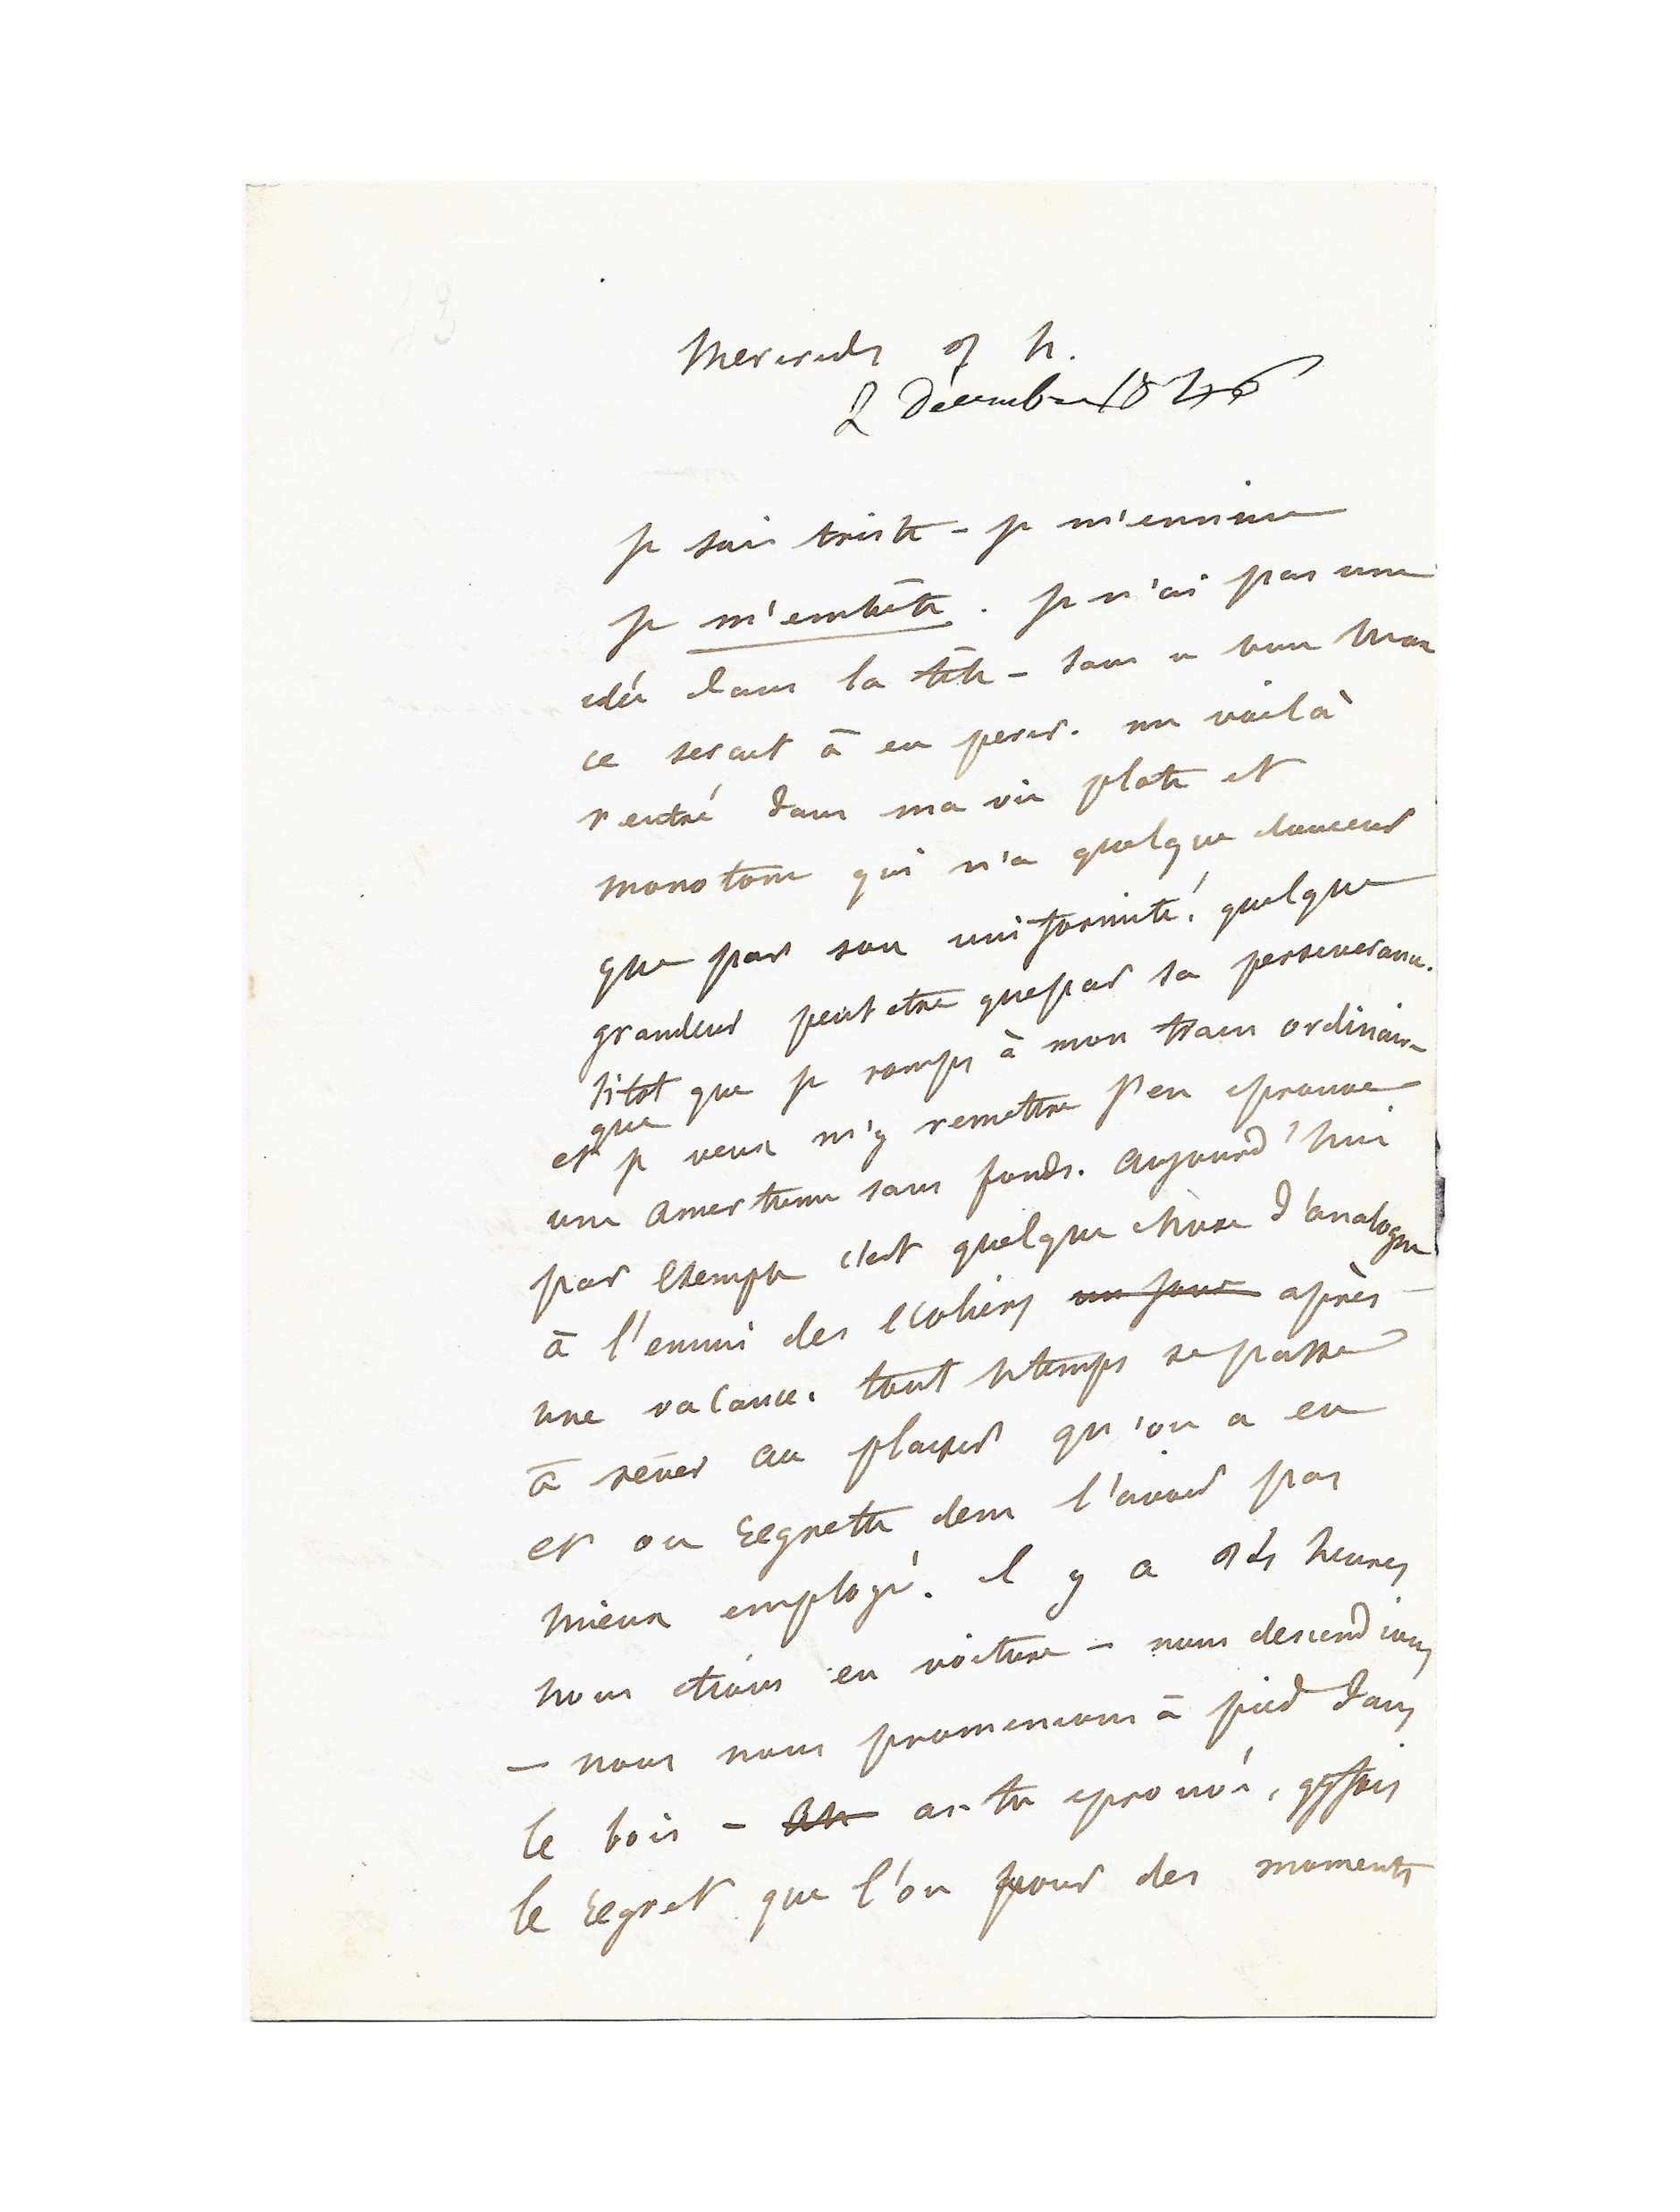 Mercredi 9 h.
2 Décembre 1846
je suis triste – je m'ennuie
je m'embête. je n'ai pas une
idée dans la tête –
ce serait à en perir. me voilà
rentré dans ma vie plate et
monotone qui n'a quelque douceur
que par son uniformité! quelque
grandeur peut etre que par sa perseverance.
sitot que je romps à mon train ordinaire
et que je veux m'y remettre j'en eprouve
une amertume sans fonds. aujourd'hui
par exemple c'est quelque chose d'analogue
à l'ennui des ecoliers un jour après
une vacance. tout le temps se passe
à rêver au plaisir qu'on a eu
et on regrette de ne l'avoir pas
mieux employé. il y a 24 heures
nous etions en voiture – nous descendions
– nous nous promenions à pied dans
le bois – as-tu eprouvé, qqfois
le regret que l'on a pour des moments